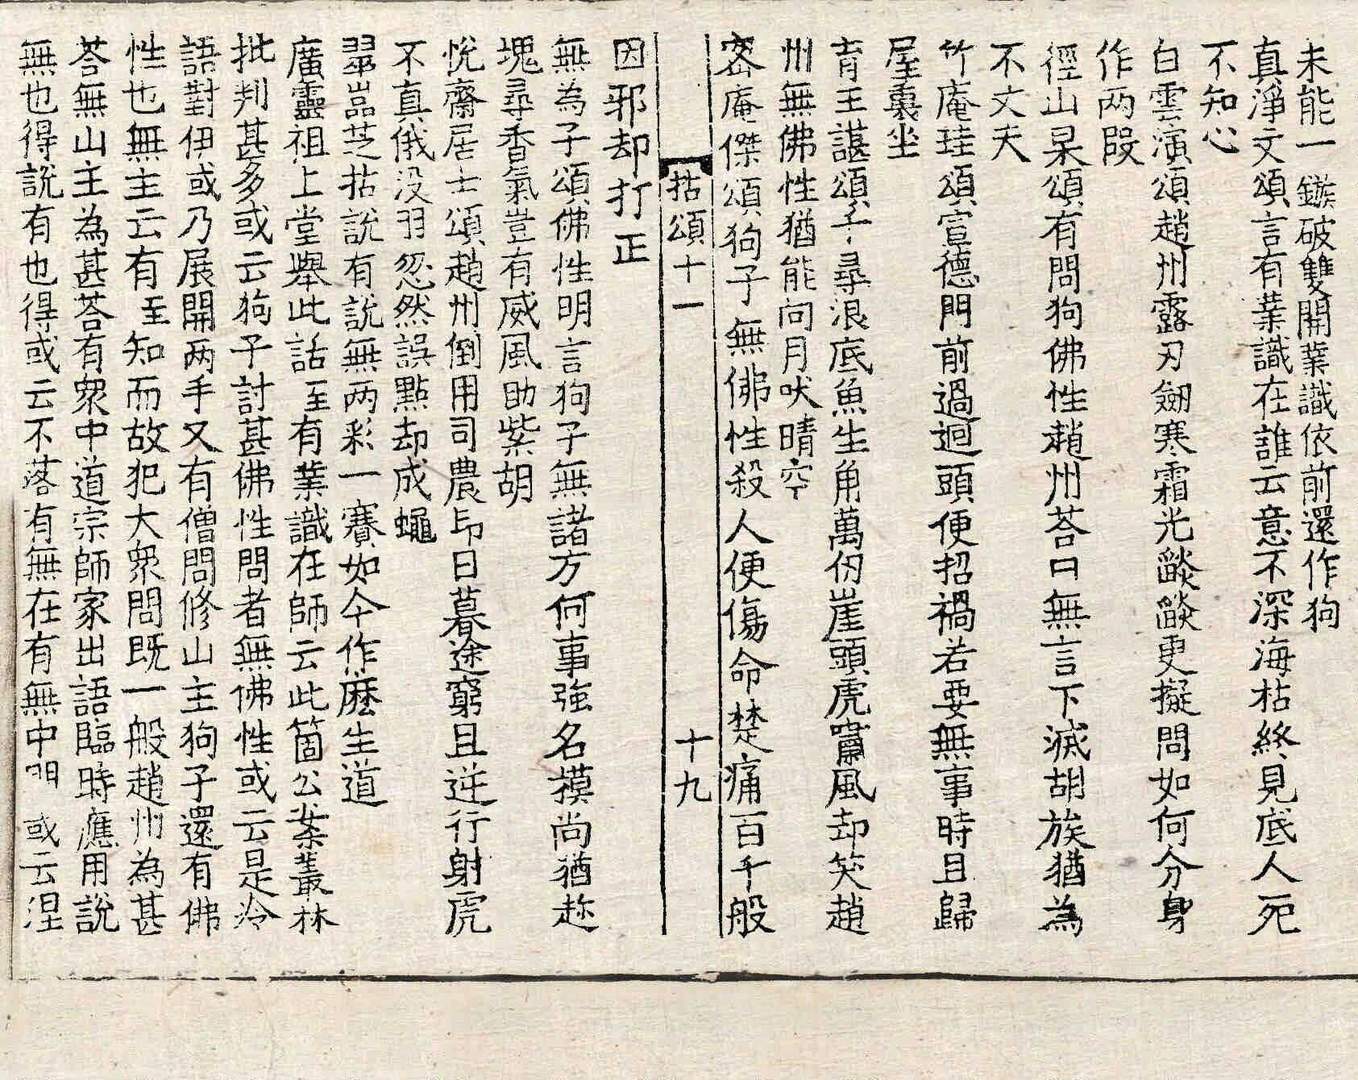 未能一鏃破雙開業識依前還作狗
真淨文頌言有業識在誰云意不深海枯終見底人死
不知心
白雲演頌趙州露刃劒寒霜光焰焰更擬問如何分身
作两段
徑山杲頌有問狗佛性趙州荅曰無言下滅胡族猶為
不丈夫
竹庵珪頌宣德門前過迴頭便招禍若要無事時且歸
屋裏坐
育王諶頌子子尋浪底魚生角萬仞崖頭虎嘯風却笑趙
州無佛性猶能向月吠晴空
密庵傑頌狗子無佛性殺人便傷命楚痛百千般
拈頌十一 十九
因邪却打正
無為子頌佛性明言狗子無諸方何事強名摸尚猶趂
塊尋香氣豈有威風助紫胡
悅齋居士頌趙州倒用司農印日暮途窮且逆行射虎
不真俄没羽忽然誤點却成蠅
翠嵓芝拈說有說無两彩一賽如今作麽生道
廣靈祖上堂舉此話至有業識在師云此箇公案叢林
批判甚多或云狗子討甚佛性問者無佛性或云是冷
語對伊或乃展開两手又有僧問修山主狗子還有佛
性也無主云有至知而故犯大衆問既一般趙州為甚
荅無山主為甚荅有衆中道宗師家出語臨時應用說
無也得說有也得或云不落有無在有無中間或云涅